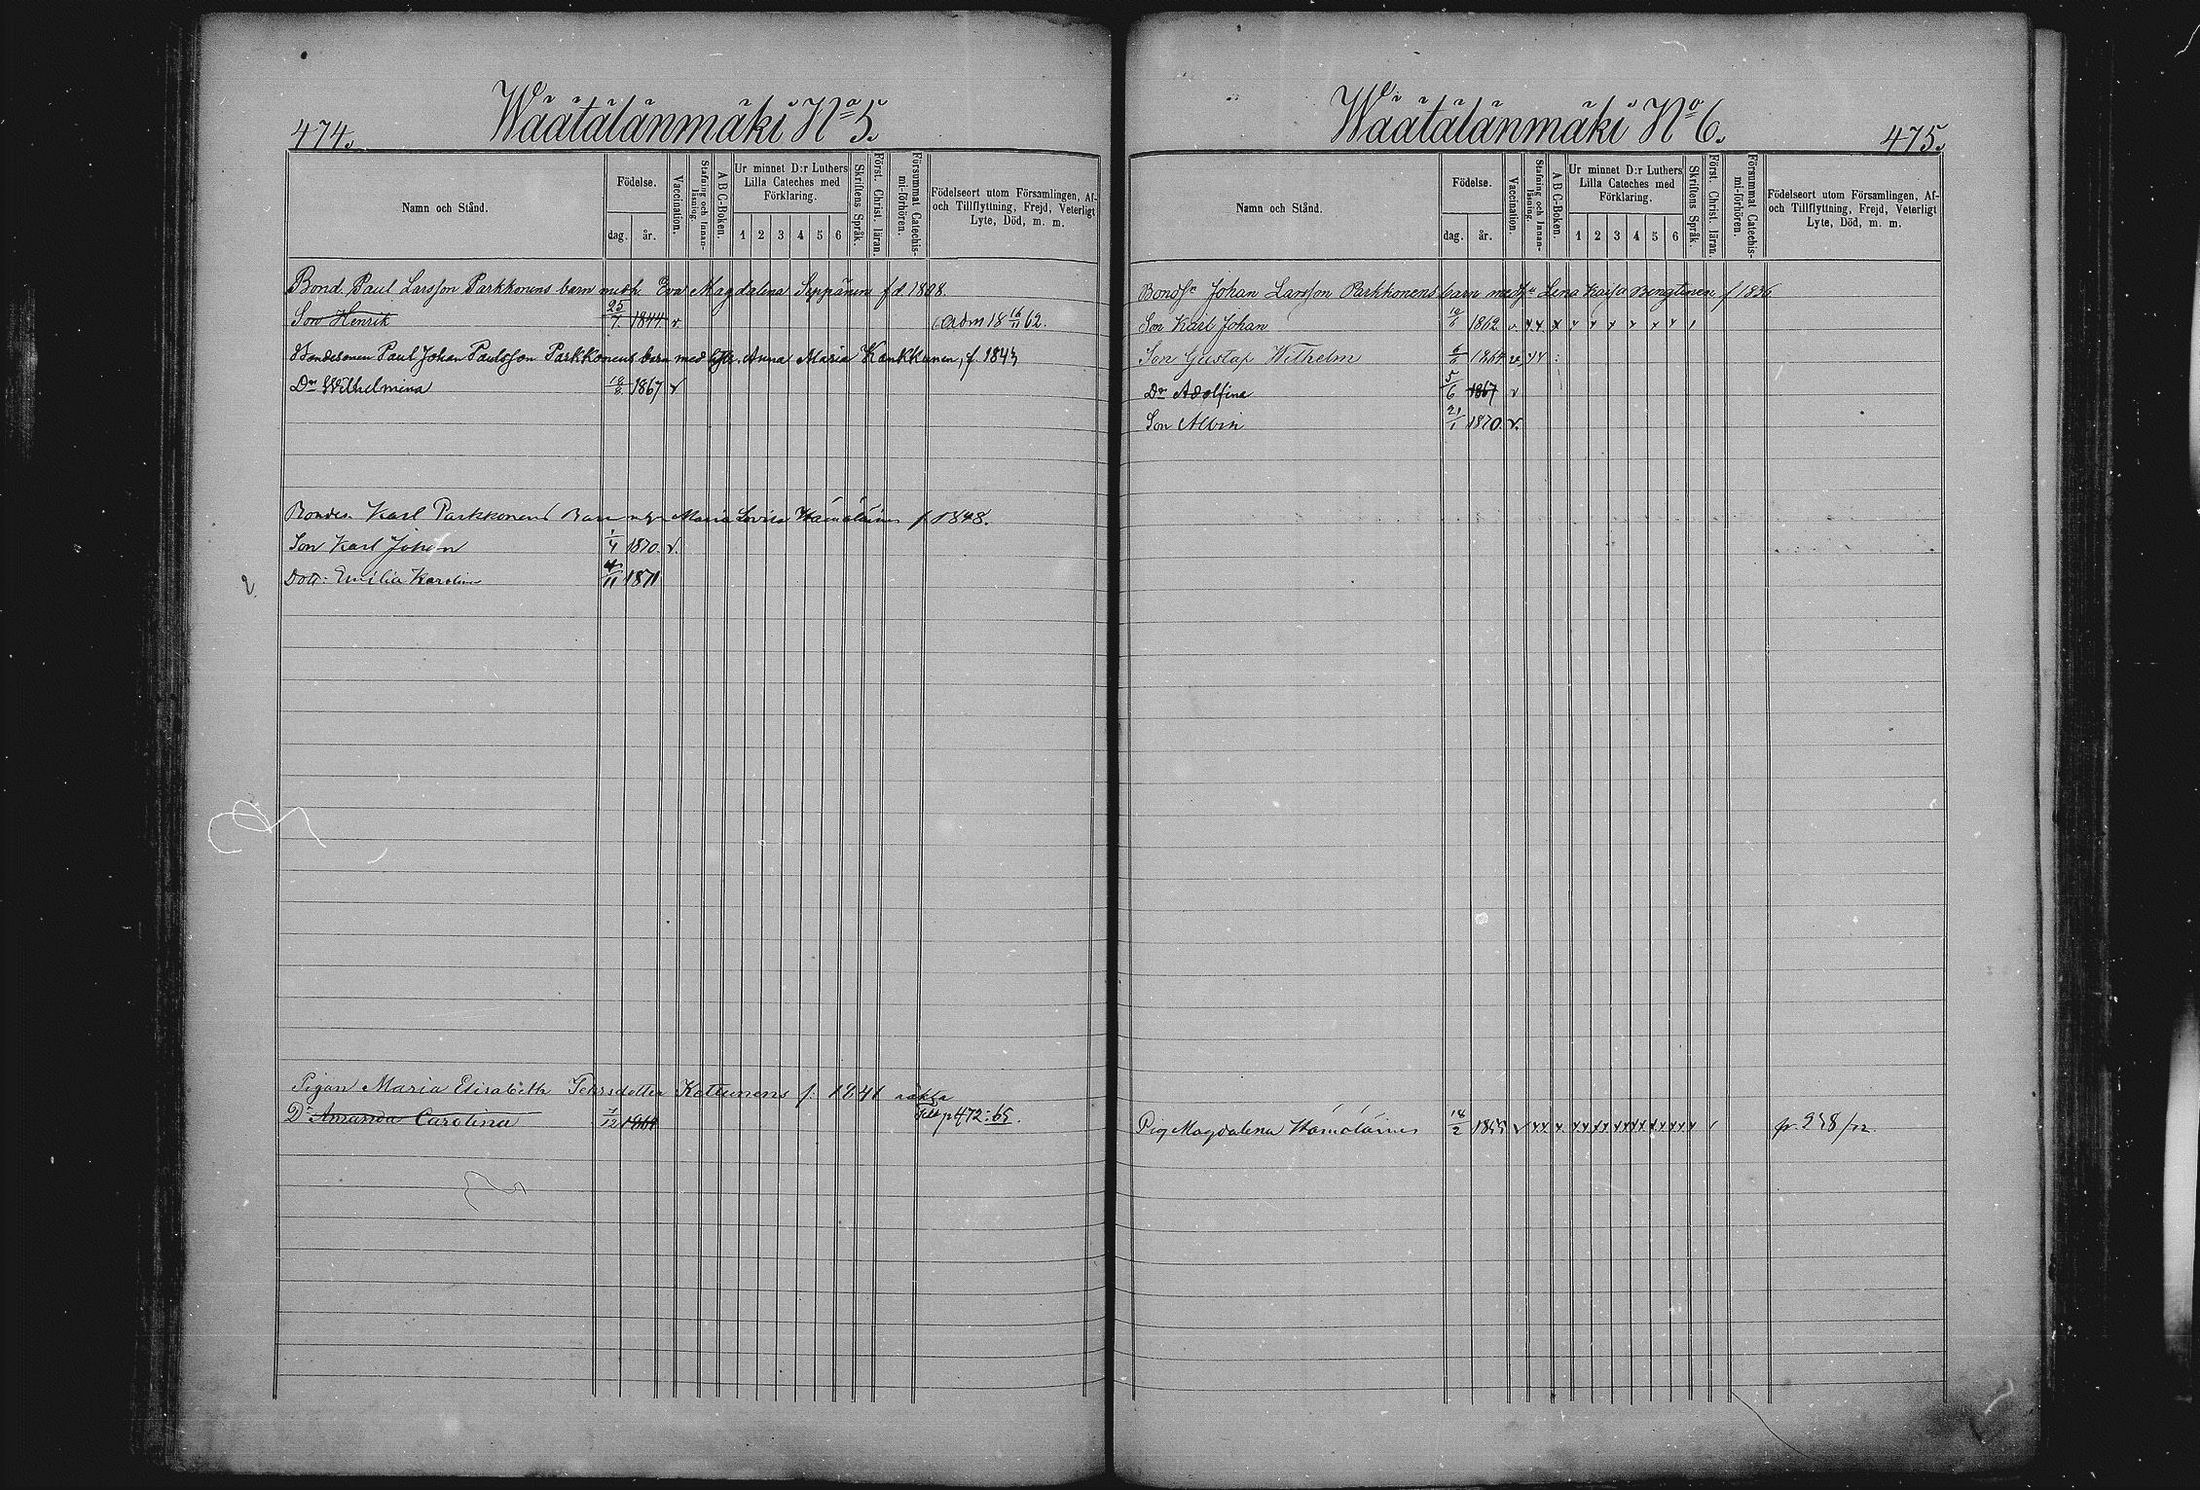 474.
Wäätälänmäki No 5.
Namn och Stånd.
Födelse.
dag.
år.
Vaccination.
Stafning och Innanläsning.
A B C-Boken.
Ur minnet D:r Luthers Lilla Cateches med Förklaring.
1 2 3 4 5 6
Skriftens Språk.
Först. Christ. läran.
Försummat Catechismi-förhören.
Födelseort utom Församlingen, Af- och Tillflyttning, Frejd, Veterligt Lyte, Död, m. m.
Bond Paul Larsson Parkkonens barn med h. Eva Magdalena Seppänen f. 1808.
Son Henrik 25/7 1844 v Adm 18 16/11 62.
Bondesonen Paul Johan Paulsson Parkkonens barn med hstr. Anna Maria Kankkunen, f 1843
Dr Wilhelmina 10/8 1867 v
Karl Parkkonens Barn Maria Lovisa f. 1848.
Son Karl Johan 1/4 1870. v.
Dott: Emilia Karolina 11 1871
Pigan Maria Elisabeth Kettunens f. 1841 oäkta
Dr Amanda Carolina 1/12 1861 Till p 472:65.
Wäätälänmäki No 6.
475.
Namn och Stånd.
Födelse.
dag.
år.
Vaccination.
Stafning och Innanläsning.
A B C-Boken.
Ur minnet D:r Luthers Lilla Cateches med Förklaring.
1 2 3 4 5 6
Skriftens Språk.
Först. Christ. läran.
Försummat Catechismi-förhören.
Födelseort utom Församlingen, Af- och Tillflyttning, Frejd, Veterligt Lyte, Död, m. m.
Johan Larsson Parkkonens barn med Lena Kaisa Bengtinen f 1836
Son Karl Johan 10/8 1862
Son Gustaf Wilhelm 1864
Dr Adolfina 5/6 1867 v
Son Albin 21/1 1870. v.
Pig Magdalena 14/2 1855 fr. 238/72.